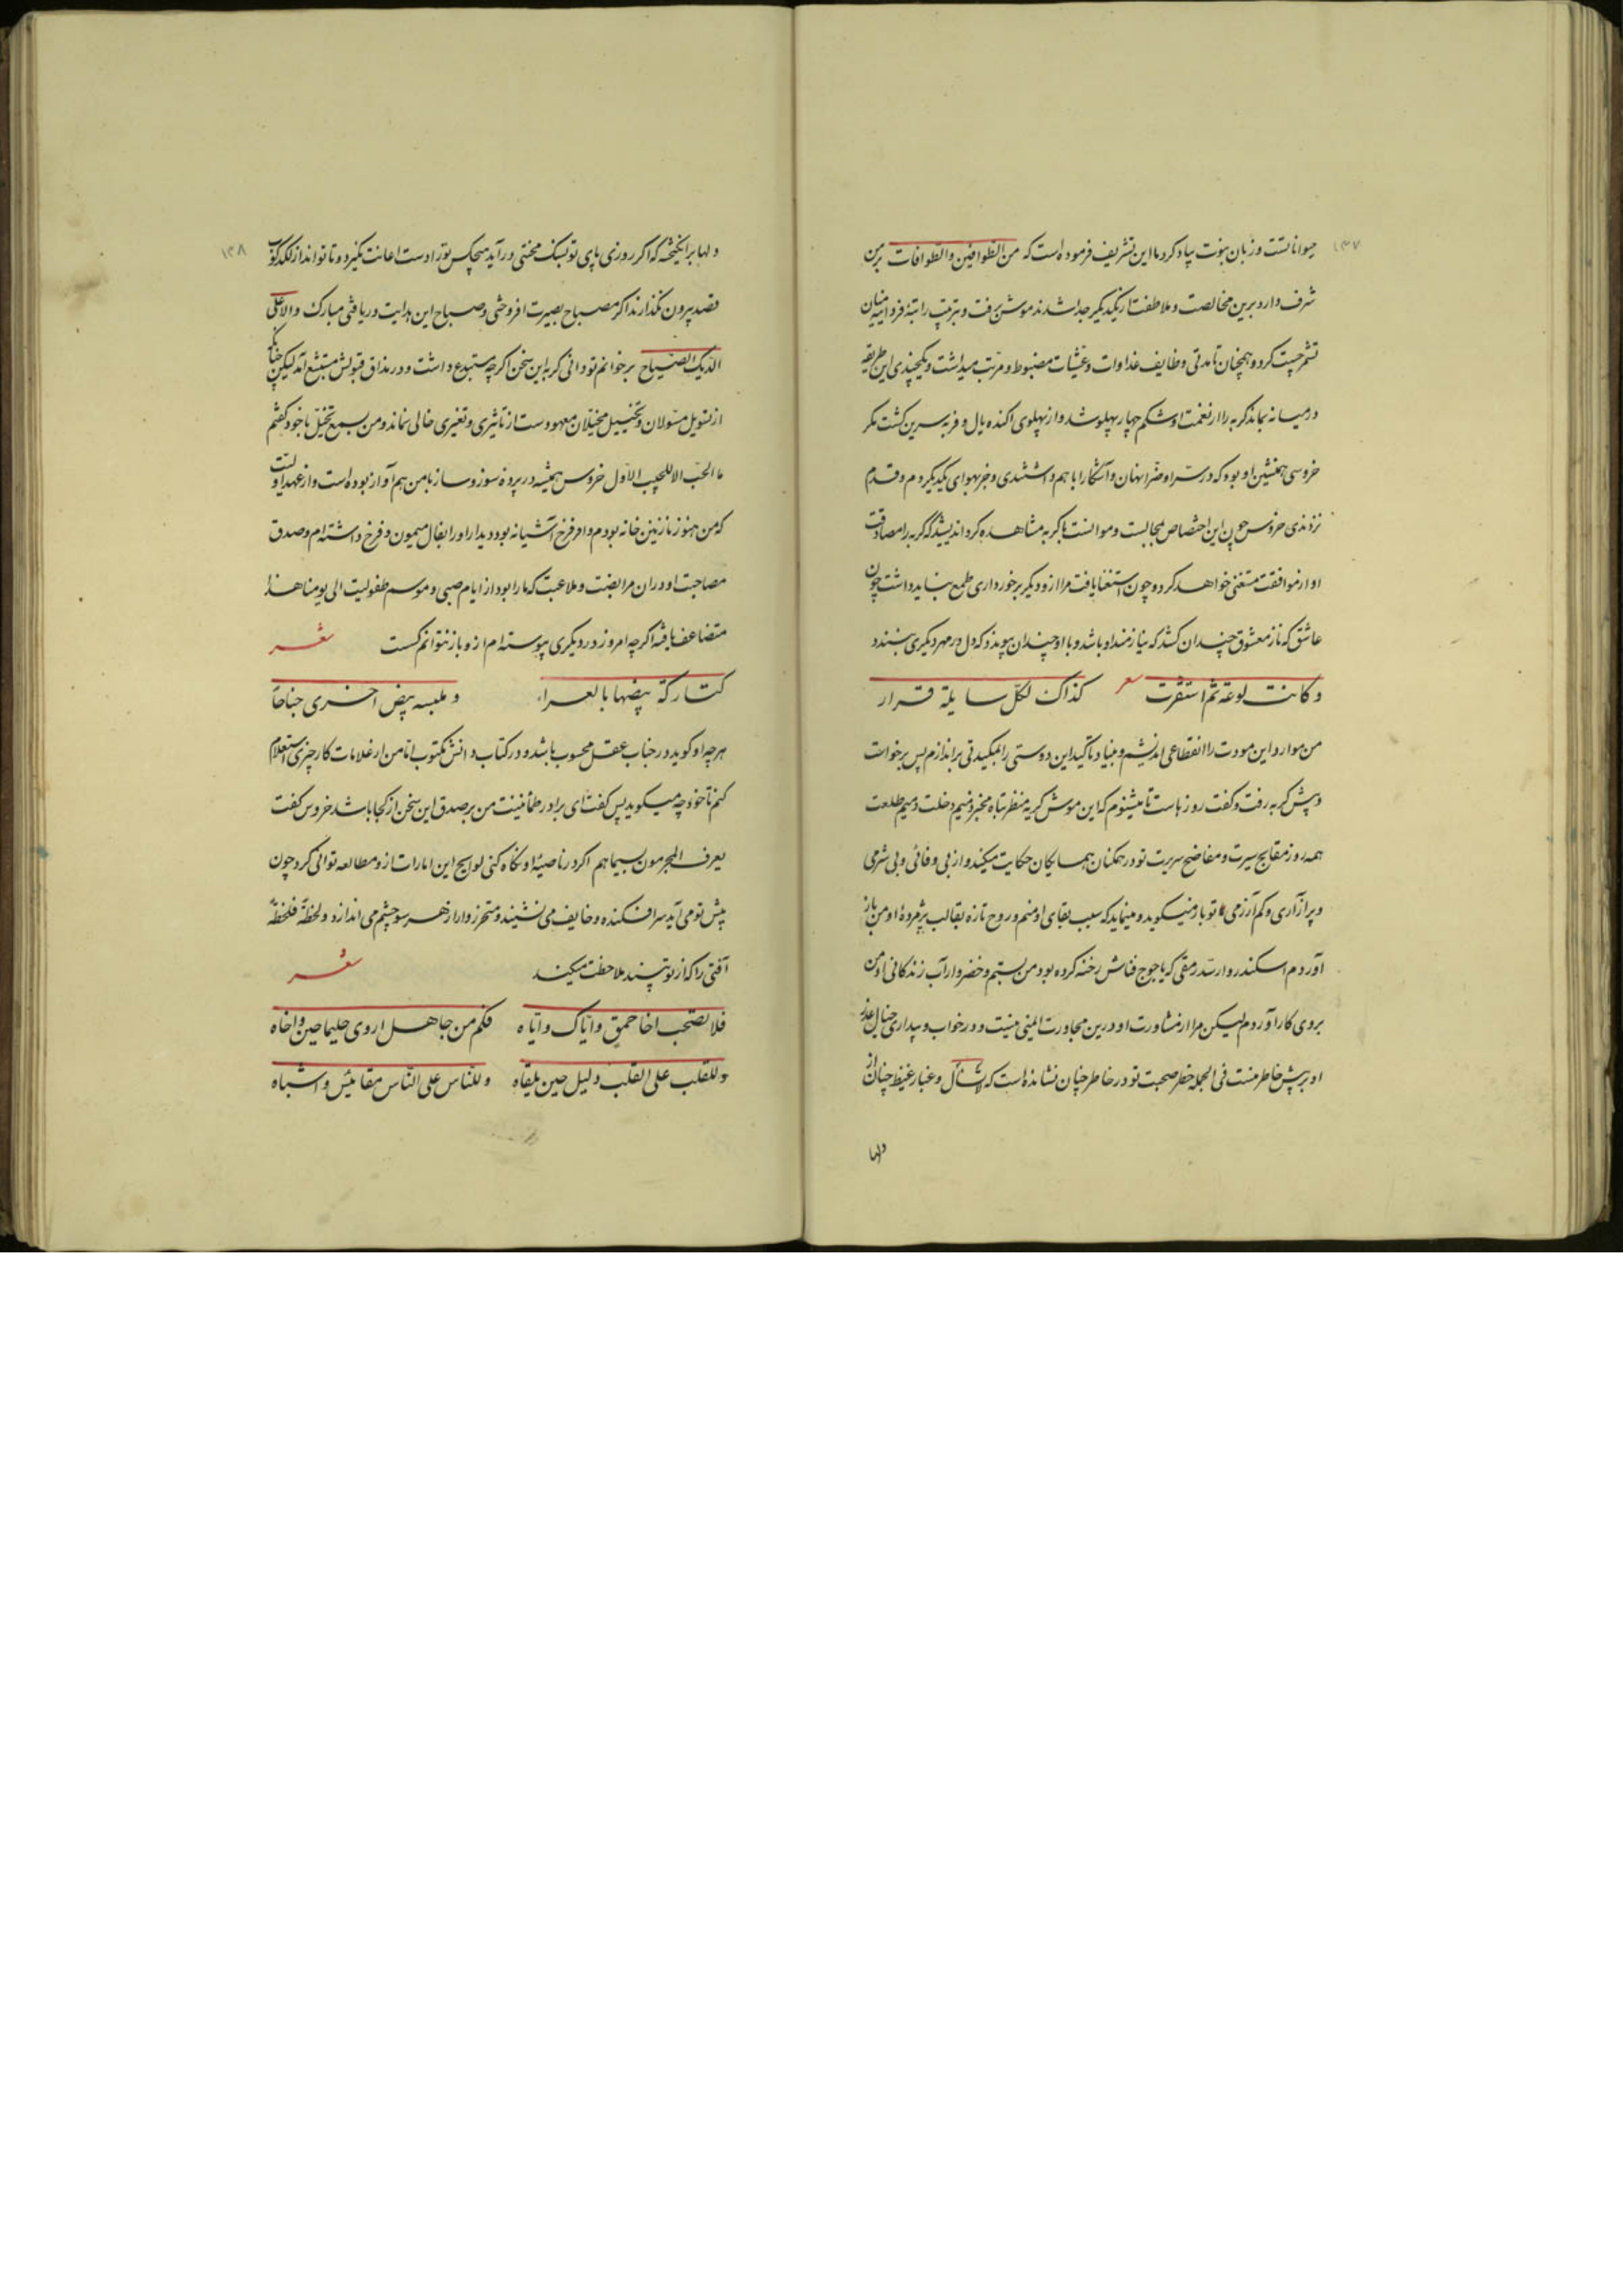 ۱۴۷
حیوانانست و زبان نبوت بیاد کرد ما این تشریف فرموده است که من الطوافین والطوافات برین
شرف دارد برین مخالصت و ملاطفت از یکدیگر جدا شدند موش برفت و بترتیب راتبهٔ فردا میان
تشمر چست کرد و همچنان تا مدتی وظایف غداوات و عشیات مضبوط و مرتب میداشت و یکچندی این طریقه
در میانه بماند گربه را از نعمت او شکم چهار پهلو شد و از پهلوی اکنده یال و فربه سرین گشت مگر
خروسی همنشین او بود که در سرا و ضرا نهان و آشکارا با هم داشتندی و جز بهوای یکدیگر دم و قدم
نزدندی خروس چون این اختصاص مجالست و موانست با گربه مشاهده کرد اندیشید که گربه را مصادقت
او از موافقت مستغنی خواهد کرد و چون استغنا یافت مرا ازو دیگر برخورداری طمع نباید داشت چون
عاشق که ناز معشوق چندان کشد که نیازمند او باشد و با او چندان پیوندد که دل در مهر دیگری نبندد
و کانت لوعة ثم استقرت شعر کذاک لکل سایلة قرار
من موارد این مودت را انقطاعی اندیشم و بنیاد تأکید این دوستی را بمکیدتی براندازم پس برخواست
و پیش گربه رفت و گفت روزهاست تا میشنوم که این موش کریه منظر تباه مخبر ذمیم دخلت دمیم طلعت
همه روز مقابح سیرت و مفاضح سریرت تو در همکنان همسایکان حکایت میکند و از بی وفائی و بی شرمی
و پرآزاری و کم آزرمی تو باز میگوید و مینماید که سبب بقای او منم و روح تازه بقالب پژمردهٔ او من باز
آوردم اسکندروار سد رمقی که یاجوج فناش رخنه کرده بود من بستم و خضروار آب زندگانی او من
بروی کار آوردم لیکن مرا از مشاورت او درین مجاورت امنی نیست و در خواب و بیداری خیال غدر
او پیش خاطر منست فی الجمله خطر صحبت تو در خاطر چنان نشانده است که لا تسأل و غبار غیظ چنان از
دلها
۱۴۸
دلها برانگیخته که اگر روزی پای تو بسنگ محنتی درآید هیچکس تو را دست اعانت نگیرد و تا تواند از لکدکوب
قصد بیرون نگذارند اگر مصباح بصیرت افروختی و صباح این هدایت دریافتی مبارک والا علی
الدیک الصیاح برخوانم تو دانی گربه این سخن اگرچه مستبدع داشت و در مذاق قبولش مستبشع آمد لیکن چنانکه
از تسویل مسولان و تخییل مخیلان معهودست از تأثیری و تغیری خالی نماند و من یسمع یخل با خود گفتم
ما الحب الا للحبیب الاول خروس همیشه در پرده سوز و ساز با من هم آواز بوده است و از عهد اولیت
که من هنوز نازنین خانه بودم و او فرخ آشیانه بود دیدار او را بفال میمون و فرخ داشته ام و صدق
مصاحبت او در آن مرابضت و ملاعبت که ما را بود از ایام صبی و موسم طفولیت الی یومنا هذا
متضاعف یافته اگرچه امروز در دیگری پیوسته ام ازو باز نتوانم گسست شعر
کتارکة بیضها بالعراء و ملبسه بیض اخری جناحا
هرچه او گوید در حساب عقل محسوب باشد و در کتاب دانش مکتوب اما من از علامات کار چیزی استعلام
کنم تا خود چه میگوید پس گفت ای برادر طمأنینت من بر صدق این سخن از کجا باشد خروس گفت
یعرف المجرمون بسیماهم اگر در ناصیهٔ او نگاه کنی لوایح این امارات ازو مطالعه توانی کرد چون
پیش تو می آید سرافکنده و خایف می نشیند و متحرزوار از هر سو چشم می اندازد و لحظة فلحظة
آفتی را که از تو ترسند ملاحظت میکند شعر
فلا تصحب اخا حمق و ایاک و ایاه فکم من جاهل اردی حلیما حین و اخاه
وللقلب علی القلب دلیل حین یلقاه وللناس علی الناس مقائیس و اشباه